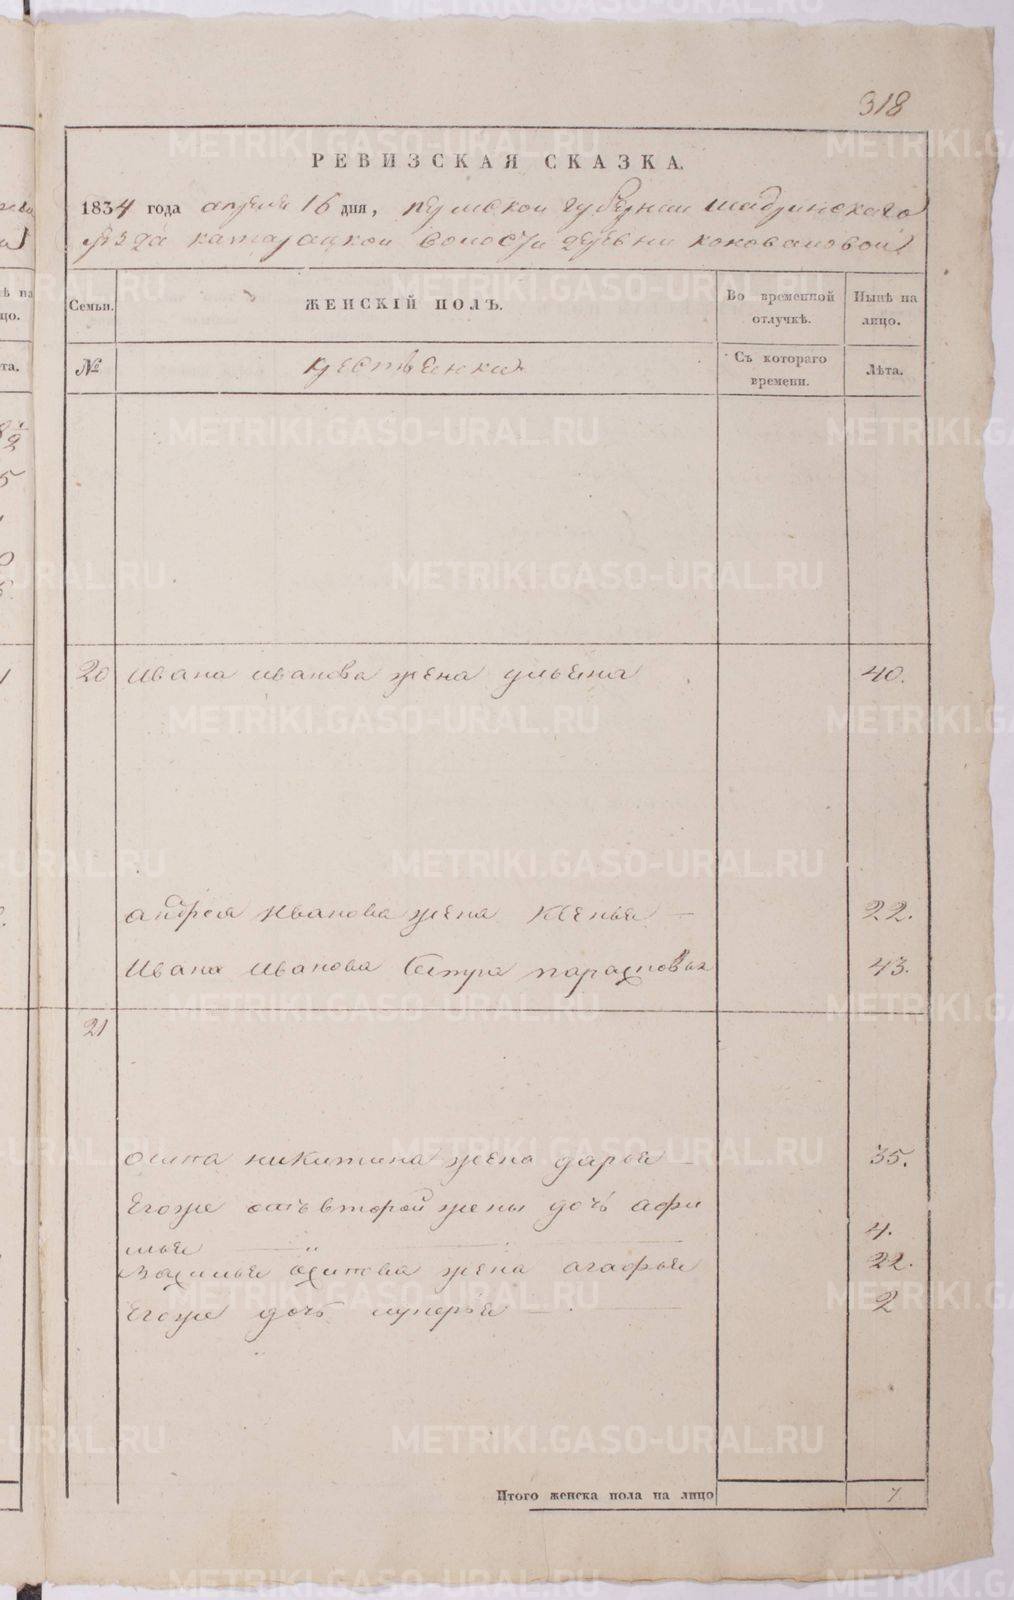 318
РЕВИЗСКАЯ СКАЗКА.
1834 года апреля 16 дня, пермской губернии шадринского
уѣзда катарацкой волости деревни коноваловой
Семьи.
ЖЕНСКІЙ ПОЛЪ.
Во временной отлучкѣ.
Нынѣ на лицо.
№
крестьянки
Съ котораго времени.
Лѣта.
20 Ивана иванова жена ульяна 40.
андрея Иванова жена Ксенья 22.
Ивана Иванова сестра парасковья 43.
21
осипа никитина жена дарья 35.
Егоже отъ второй жены дочь афи
мья 4.
Василья осипова жена агафья 22.
Егоже дочь лукерья 2
Итого женска пола на лицо 7
METRIKI.GASO-URAL.RU